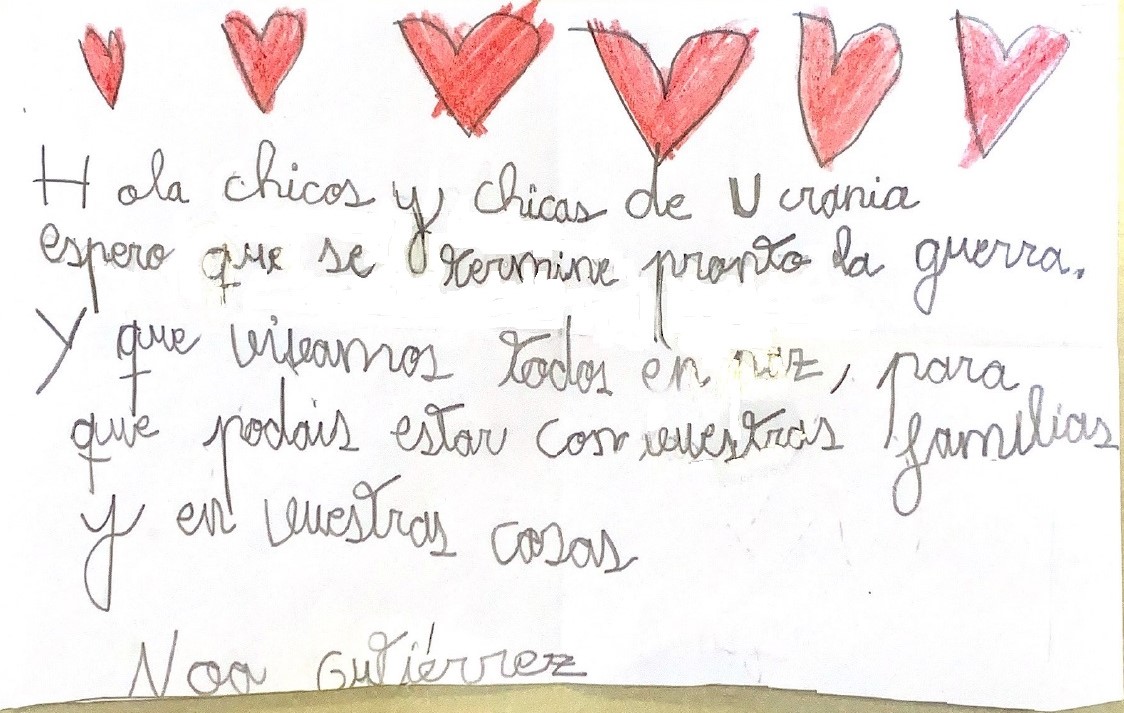 Hola chicos y chicas de Ucrania
espero que se termine pronto la guerra.
Y que viveamos todos en paz, para
que podais estar con vuestras familias
y en vuestras cosas
Noa Gutiérrez